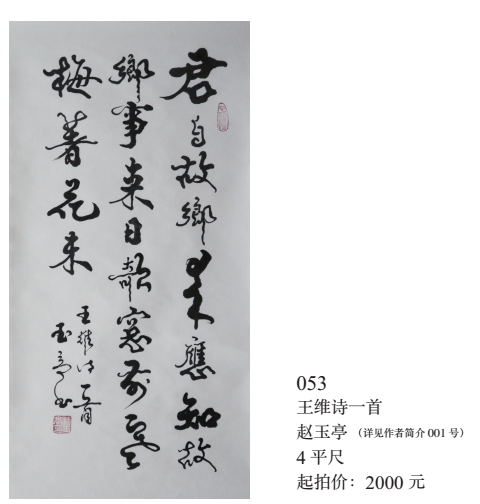 君自故鄉来應知故
鄉事来日綺窗前寒
梅著花未
王維诗一首
玉亭书
053
王维诗一首
赵玉亭 （详见作者简介 001 号）
4 平尺
起拍价：2000 元